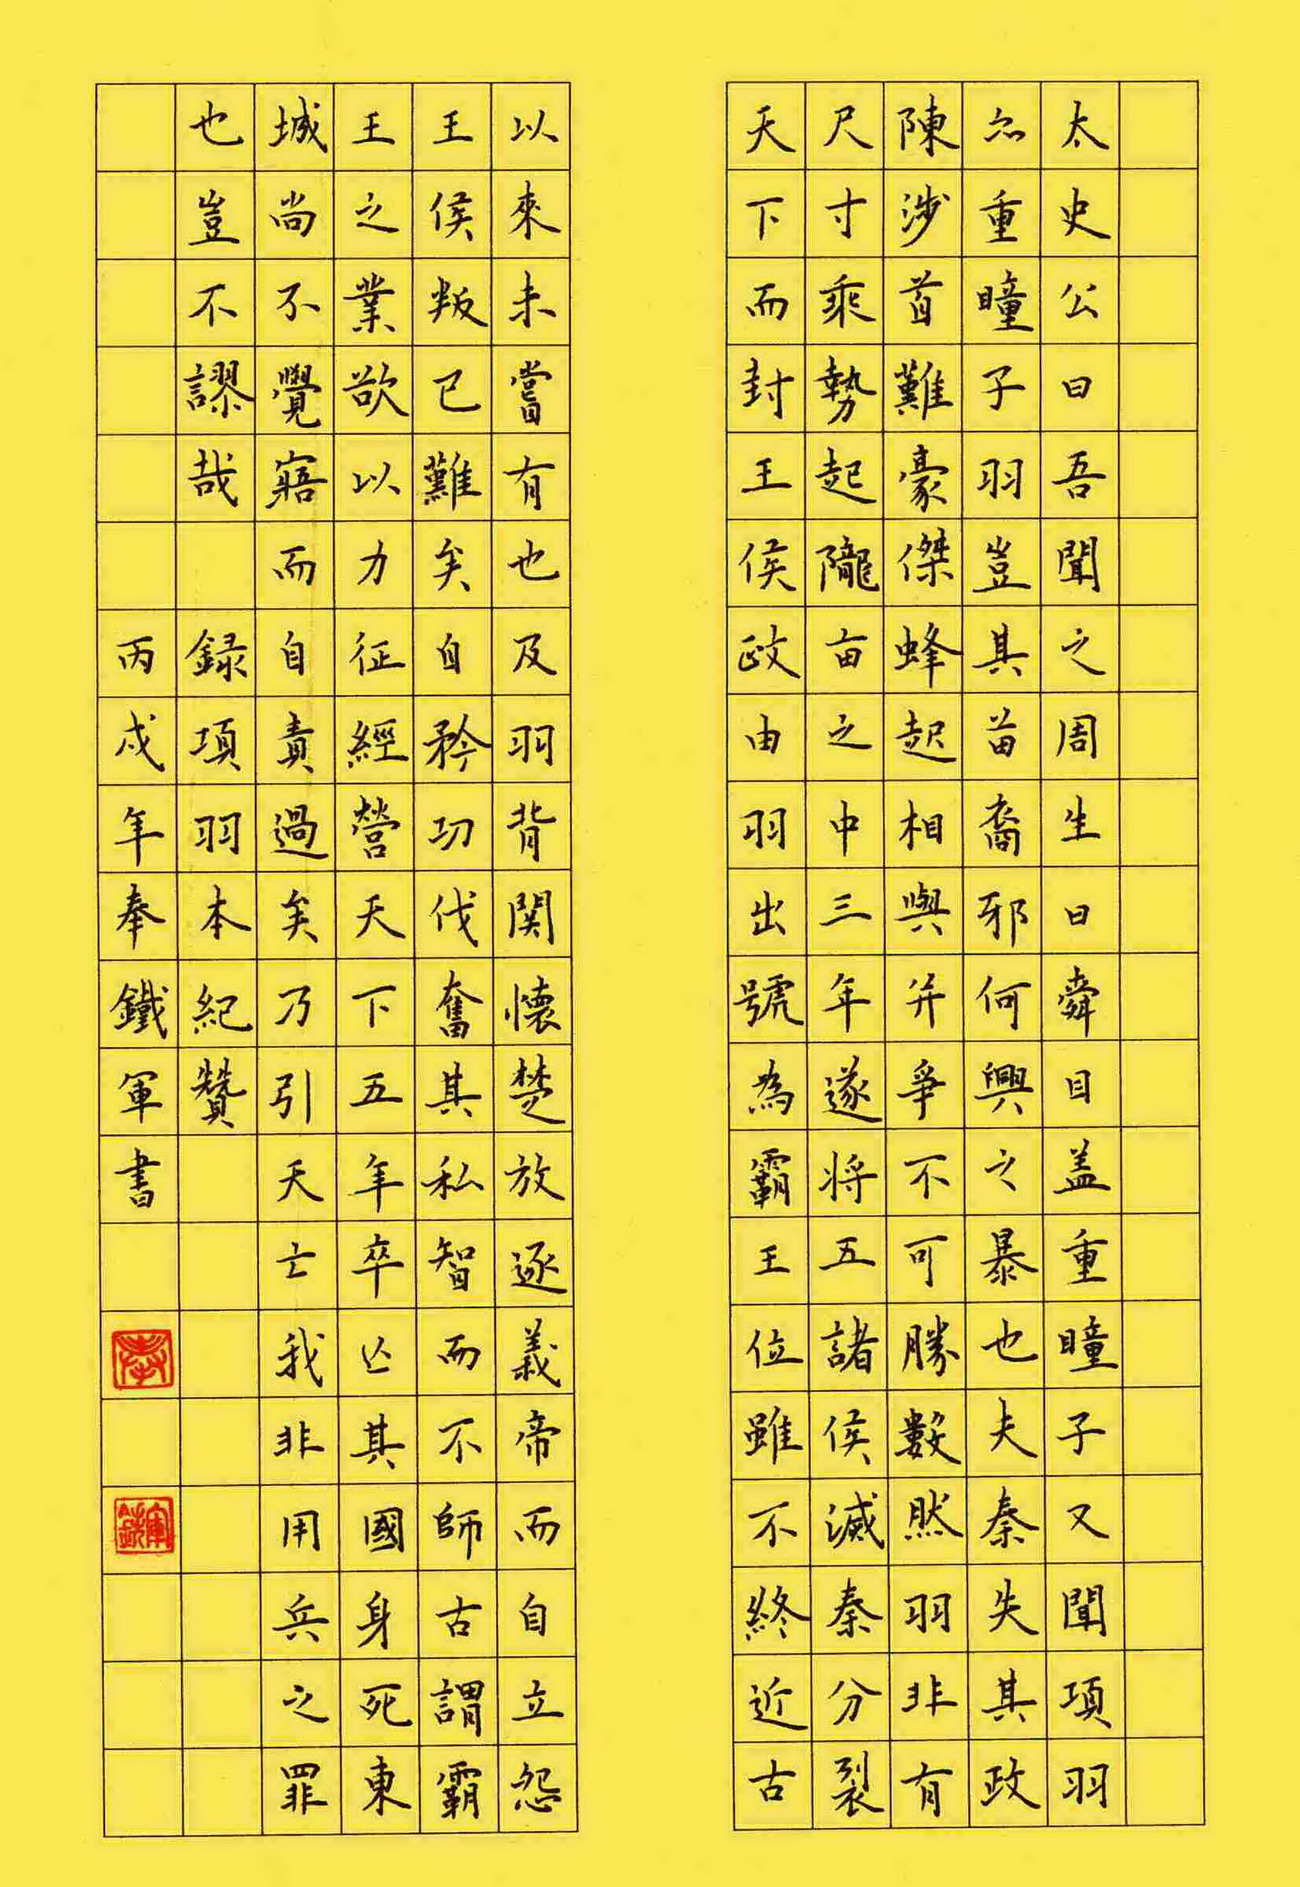 太史公曰吾聞之周生曰舜目盖重瞳子又聞項羽
亦重瞳子羽豈其苗裔邪何興之暴也夫秦失其政
陳涉首難豪傑蜂起相與并爭不可勝數然羽非有
尺寸乘勢起隴亩之中三年遂将五諸侯滅秦分裂
天下而封王侯政由羽出號為霸王位雖不終近古
以來未嘗有也及羽背関懷楚放逐義帝而自立怨
王侯叛已難矣自矜功伐奮其私智而不師古謂霸
王之業欲以力征經營天下五年卒亡其國身死東
城尚不覺寤而自責過矣乃引天亡我非用兵之罪
也豈不謬哉 録項羽本紀贊
丙戌年奉鐵軍書